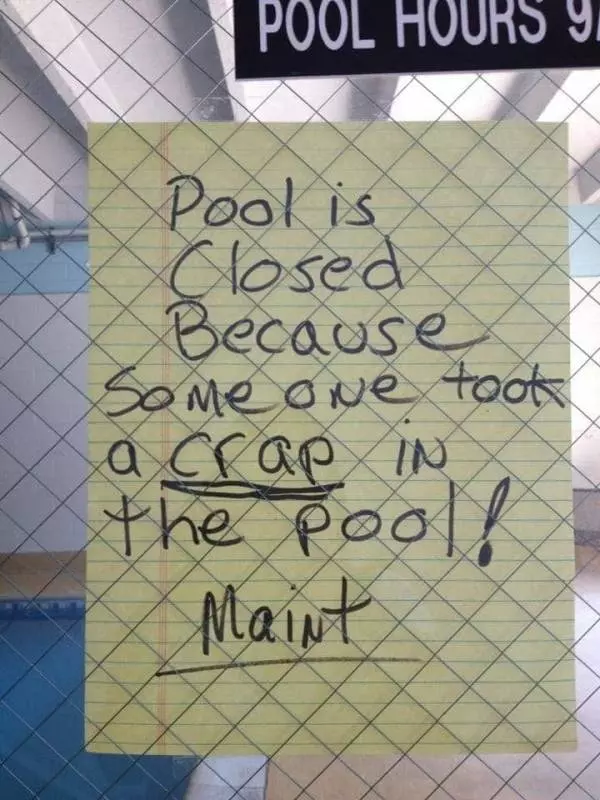 POOL HOURS 9
Pool is
Closed
Because
Someone took
a crap in
the pool!
Maint